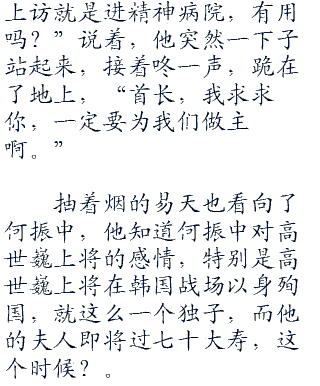 上访就是进精神病院，有用
吗？”说着，他突然一下子
站起来，接着咚一声，跪在
了地上，“首长，我求求
你，一定要为我们做主
啊。”
抽着烟的易天也看向了
何振中，他知道何振中对高
世巍上将的感情，特别是高
世巍上将在韩国战场以身殉
国，就这么一个独子，而他
的夫人即将过七十大寿，这
个时候？。